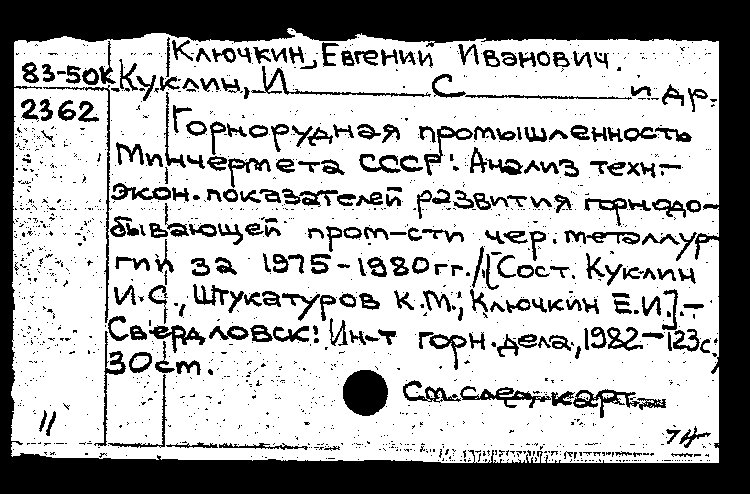 Ключкин, Евгений Иванович.
83-50К Куклин, И С и др.
2362
Горнорудная промышленность
Минчермета СССР: Анализ техн.-
экон. показателей развития горнодо-
бывающей пром-сти чер. металлур-
гии за 1975-1980гг. / [Сост. Куклин
И.С., Штукатуров К.М., Ключкин Е.И.]. -
Свердловск: Ин-т горн. дела, 1982. - 123с;
30cm.
См. след. карт.
11